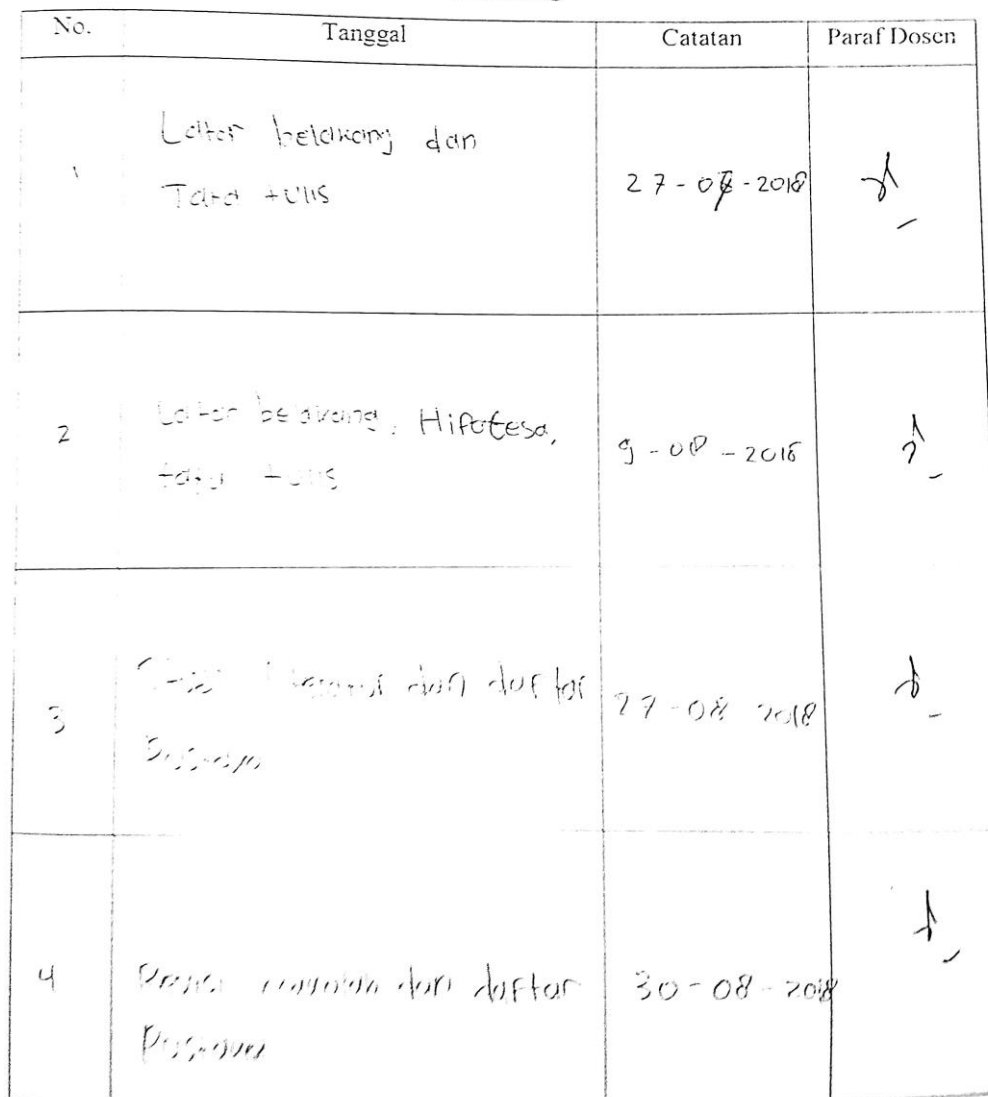 No. Tanggal Catatan Paraf Dosen
1 Latar belakang dan
Tata tulis 27-07-2018
2 Latar belakang, Hipotesa,
tata tulis 9-08-2018
3 dan daftar 27-08-2018
Pustaka
4 dan daftar 30-08-2018
Pustaka